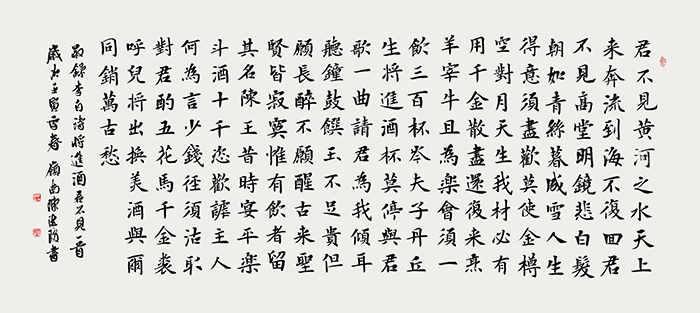 君不見黃河之水天上
來奔流到海不復回君
不見高堂明鏡悲白髮
朝如青絲暮成雪人生
得意須盡歡莫使金樽
空對月天生我材必有
用千金散盡還復來烹
羊宰牛且為樂會須一
飲三百杯岑夫子丹丘
生將進酒杯莫停與君
歌一曲請君為我傾耳
聽鐘鼓饌玉不足貴但
願長醉不願醒古來聖
賢皆寂寞惟有飲者留
其名陳王昔時宴平樂
斗酒十千恣歡謔主人
何為言少錢徑須沽取
對君酌五花馬千金裘
呼兒將出換美酒與爾
同銷萬古愁
錄李白詩將進酒君不見一首
歲次壬寅春嶺南陳書